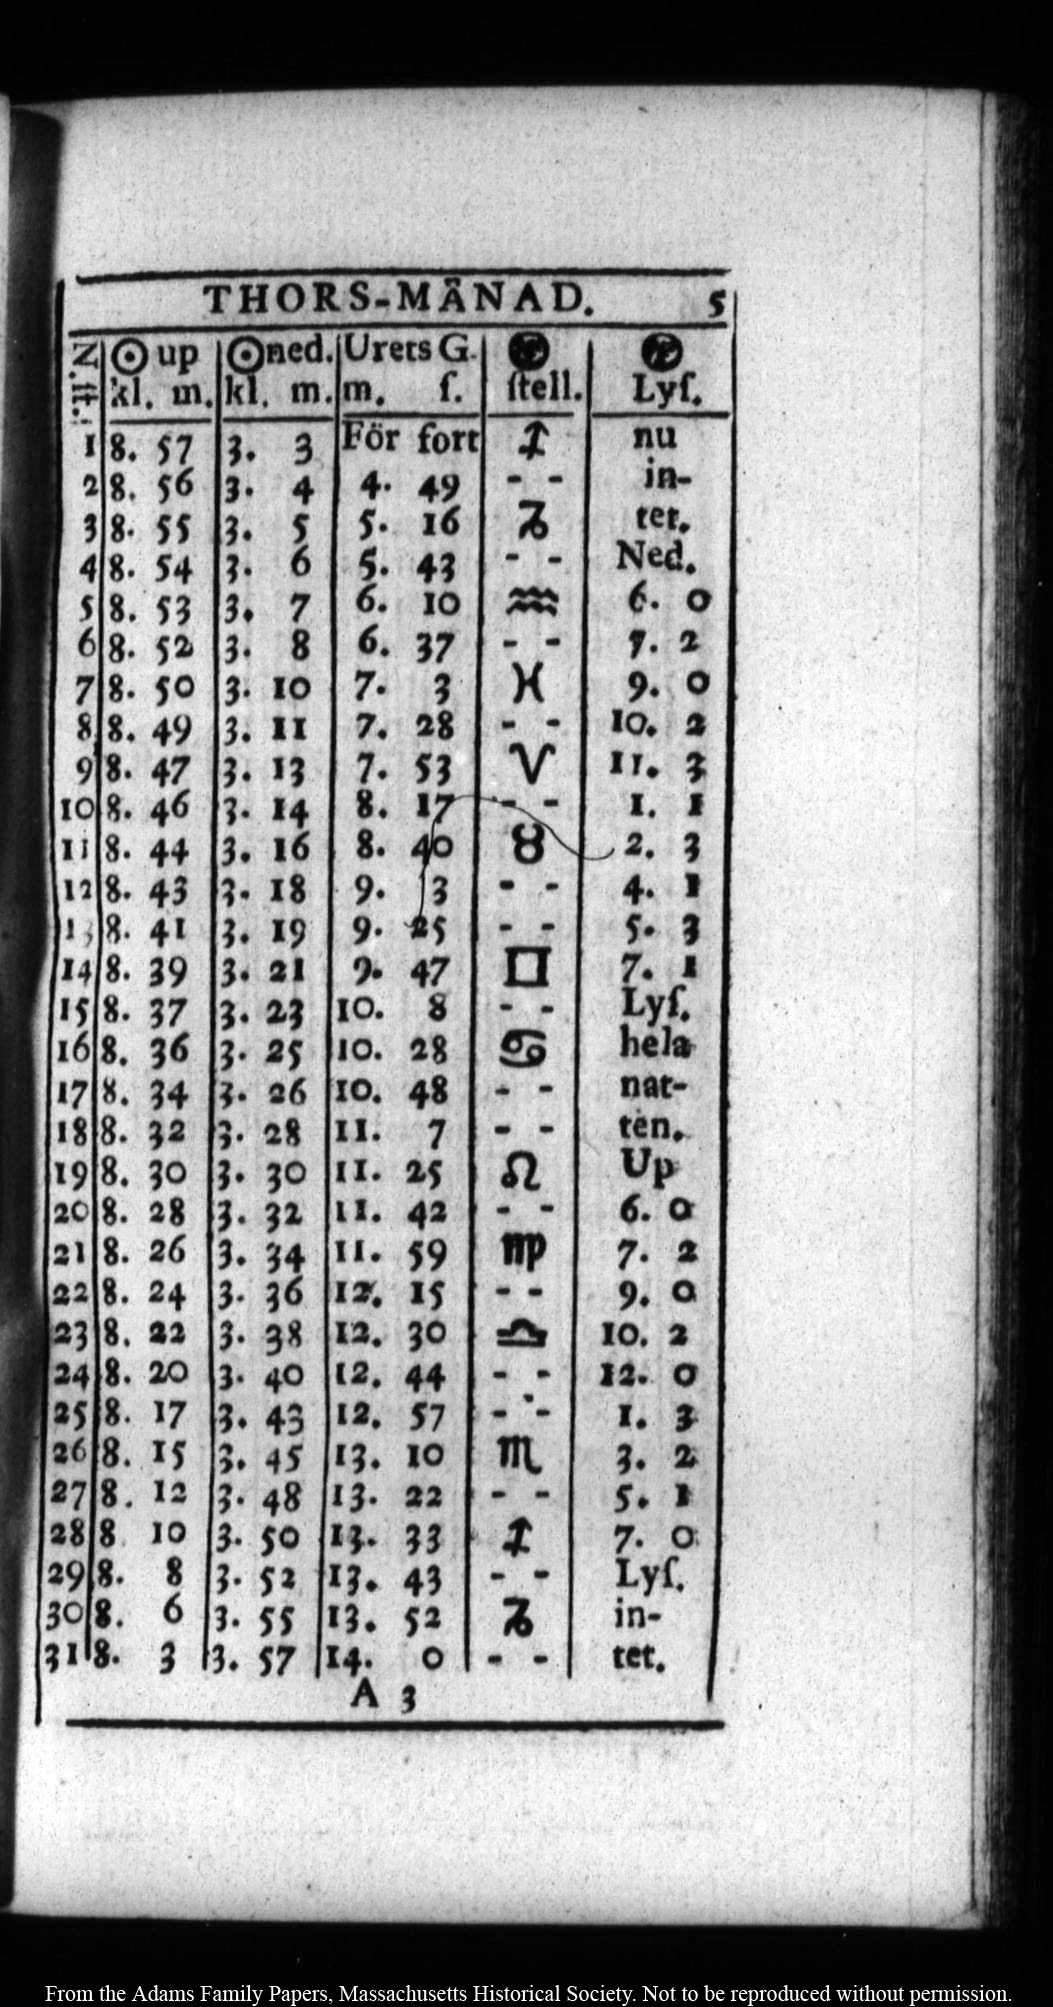 THORS-MÅNAD. 5
N. ſt. ☉ up ☉ned. Urets G.
kl. m. kl. m. m. ſ. ſtell. Lyſ.
1 8. 57 3. 3 För fort ♐ nu
2 8. 56 3. 4 4. 49 - - in-
3 8. 55 3. 5 5. 16 ♑ tet.
4 8. 54 3. 6 5. 43 - - Ned.
5 8. 53 3. 7 6. 10 ♒ 6. 0
6 8. 52 3. 8 6. 37 - - 7. 2
7 8. 50 3. 10 7. 3 ♓ 9. 0
8 8. 49 3. 11 7. 28 - - 10. 2
9 8. 47 3. 13 7. 53 ♈ 11. 3
10 8. 46 3. 14 8. 17 - - 1. 1
11 8. 44 3. 16 8. 40 ♉ 2. 3
12 8. 43 3. 18 9. 3 - - 4. 1
13 8. 41 3. 19 9. 25 - - 5. 3
14 8. 39 3. 21 9. 47 ♊ 7. 1
15 8. 37 3. 23 10. 8 - - Lyſ.
16 8. 36 3. 25 10. 28 ♋ hela
17 8. 34 3. 26 10. 48 - - nat-
18 8. 32 3. 28 11. 7 - - ten.
19 8. 30 3. 30 11. 25 ♌ Up
20 8. 28 3. 32 11. 42 - - 6. 0
21 8. 26 3. 34 11. 59 ♍ 7. 2
22 8. 24 3. 36 12. 15 - - 9. 0
23 8. 22 3. 38 12. 30 ♎ 10. 2
24 8. 20 3. 40 12. 44 - - 12. 0
25 8. 17 3. 43 12. 57 - - 1. 3
26 8. 15 3. 45 13. 10 ♏ 3. 2
27 8. 12 3. 48 13. 22 - - 5. 1
28 8. 10 3. 50 13. 33 ♐ 7. 0
29 8. 8 3. 52 13. 43 - - Lyſ.
30 8. 6 3. 55 13. 52 ♑ in-
31 8. 3 3. 57 14. 0 - - tet.
A 3
From the Adams Family Papers, Massachusetts Historical Society. Not to be reproduced without permission.